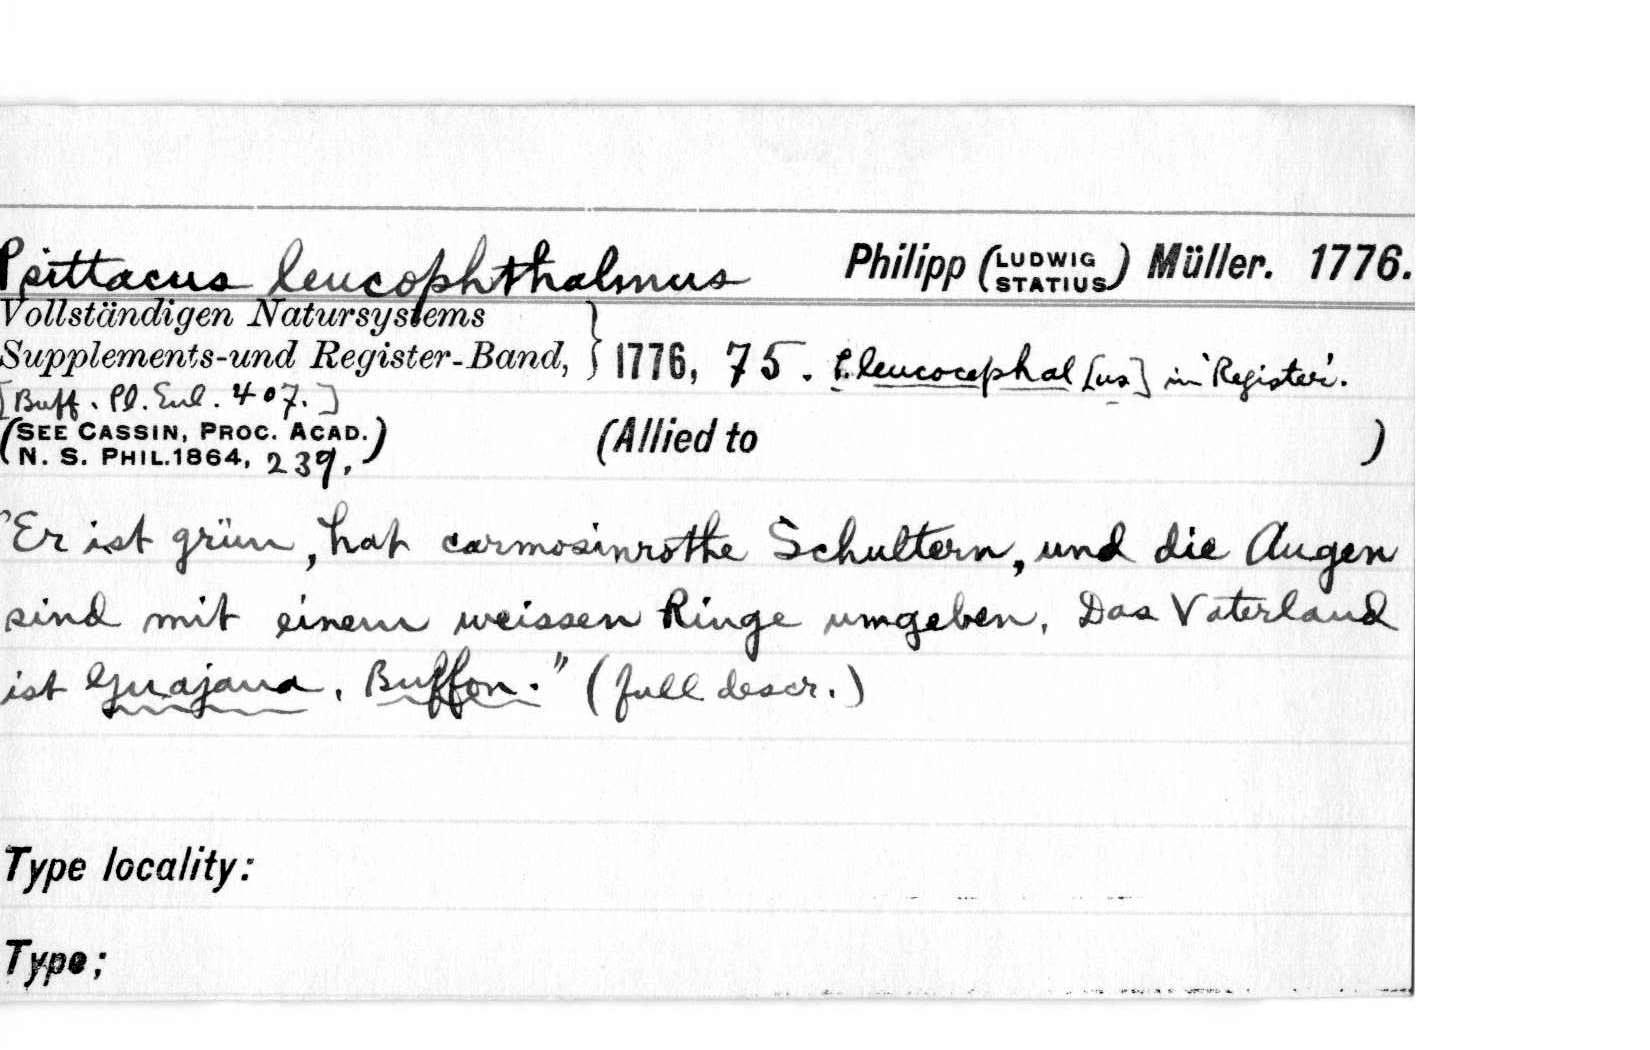 Psittacus leucophthalmus Philipp (LUDWIG STATIUS) Müller. 1776.
Vollständigen Natursystems
Supplements-und Register-Band, } 1776, 75. P. leucocephal[us] in 'Register'.
[Buff. Pl. Enl. 407.]
(SEE CASSIN, PROC. ACAD. N. S. PHIL. 1864, 239.) (Allied to )
"Er ist grün, hat carmosinrothe Schultern, und die Augen
sind mit einem weissen Ringe umgeben. Das Vaterland
ist Guajana. Buffon." (full descr.)
Type locality:
Type;